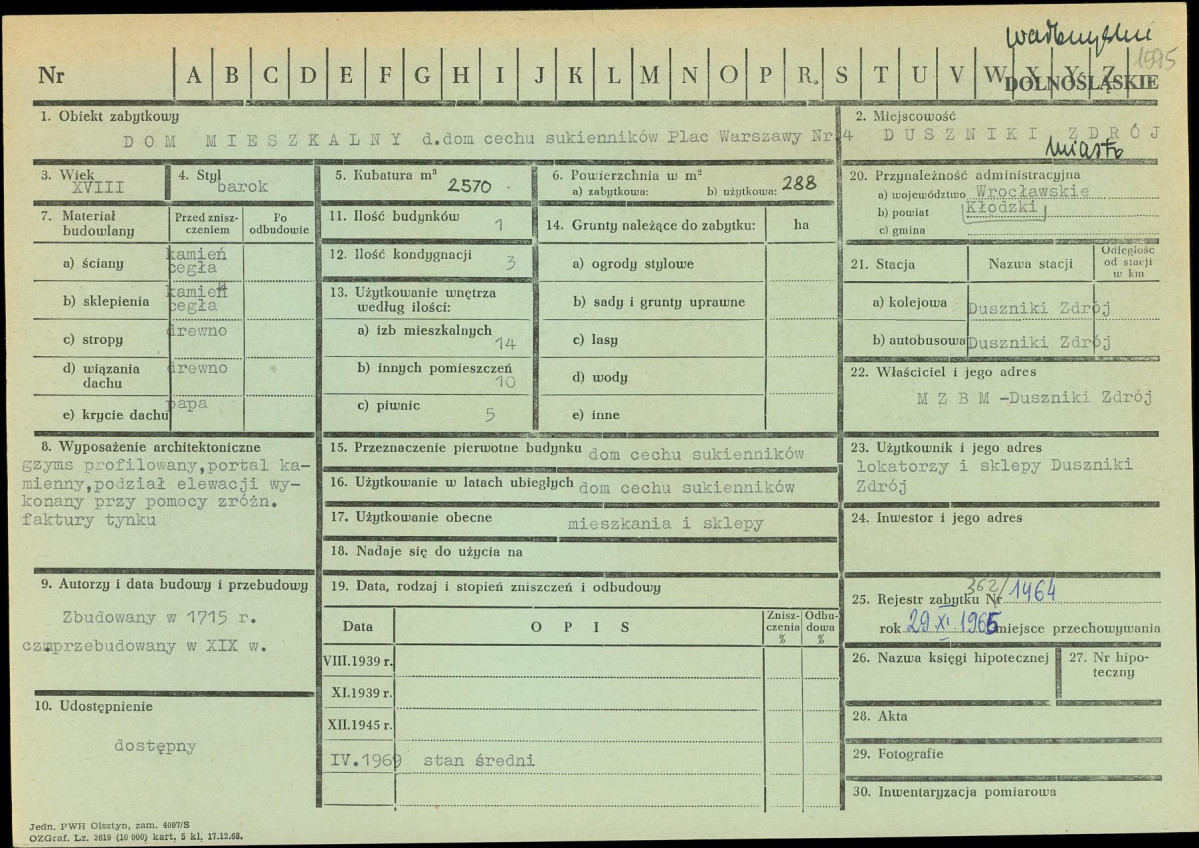 wałbrzyskie
1595
Nr A B C D E F G H I J K L M N O P R S T U V W X Y Z Ż
DOLNOŚLĄSKIE
1. Obiekt zabytkowy
DOM MIESZKALNY d.dom cechu sukienników Plac Warszawy Nr 4
2. Miejscowość
DUSZNIKI ZDRÓJ
miasto
3. Wiek
XVIII
4. Styl
barok
5. Kubatura m³
2570
6. Powierzchnia w m²
a) zabytkowa: b) użytkowa: 288
20. Przynależność administracyjna
a) województwo Wrocławskie
b) powiat Kłodzki
c) gmina
7. Materiał budowlany
Przed zniszczeniem
Po odbudowie
a) ściany kamień cegła
b) sklepienia kamień cegła
c) stropy drewno
d) wiązania dachu drewno
e) krycie dachu papa
11. Ilość budynków 1
12. Ilość kondygnacji 3
13. Użytkowanie wnętrza według ilości:
a) izb mieszkalnych 14
b) innych pomieszczeń 10
c) piwnic 5
14. Grunty należące do zabytku: ha
a) ogrody stylowe
b) sady i grunty uprawne
c) lasy
d) wody
e) inne
21. Stacja Nazwa stacji Odległość od stacji w km
a) kolejowa Duszniki Zdrój
b) autobusowa Duszniki Zdrój
22. Właściciel i jego adres
M Z B M -Duszniki Zdrój
8. Wyposażenie architektoniczne
gzyms profilowany,portal ka-
mienny,podział elewacji wy-
konany przy pomocy zróżn.
faktury tynku
15. Przeznaczenie pierwotne budynku dom cechu sukienników
16. Użytkowanie w latach ubiegłych dom cechu sukienników
17. Użytkowanie obecne mieszkania i sklepy
18. Nadaje się do użycia na
23. Użytkownik i jego adres
lokatorzy i sklepy Duszniki
Zdrój
24. Inwestor i jego adres
9. Autorzy i data budowy i przebudowy
Zbudowany w 1715 r.
przebudowany w XIX w.
19. Data, rodzaj i stopień zniszczeń i odbudowy
Data OPIS Zniszczenia % Odbudowa %
VIII.1939 r.
XI.1939 r.
XII.1945 r.
IV.1969 stan średni
25. Rejestr zabytku Nr 362/1464
rok 29 XI 1965 miejsce przechowywania
26. Nazwa księgi hipotecznej
27. Nr hipoteczny
10. Udostępnienie
dostępny
28. Akta
29. Fotografie
30. Inwentaryzacja pomiarowa
Jedn. PWH Olsztyn, zam. 4097/S
OZGraf. Lz. 2619 (10 000) kart. 5 kl. 17.12.68.